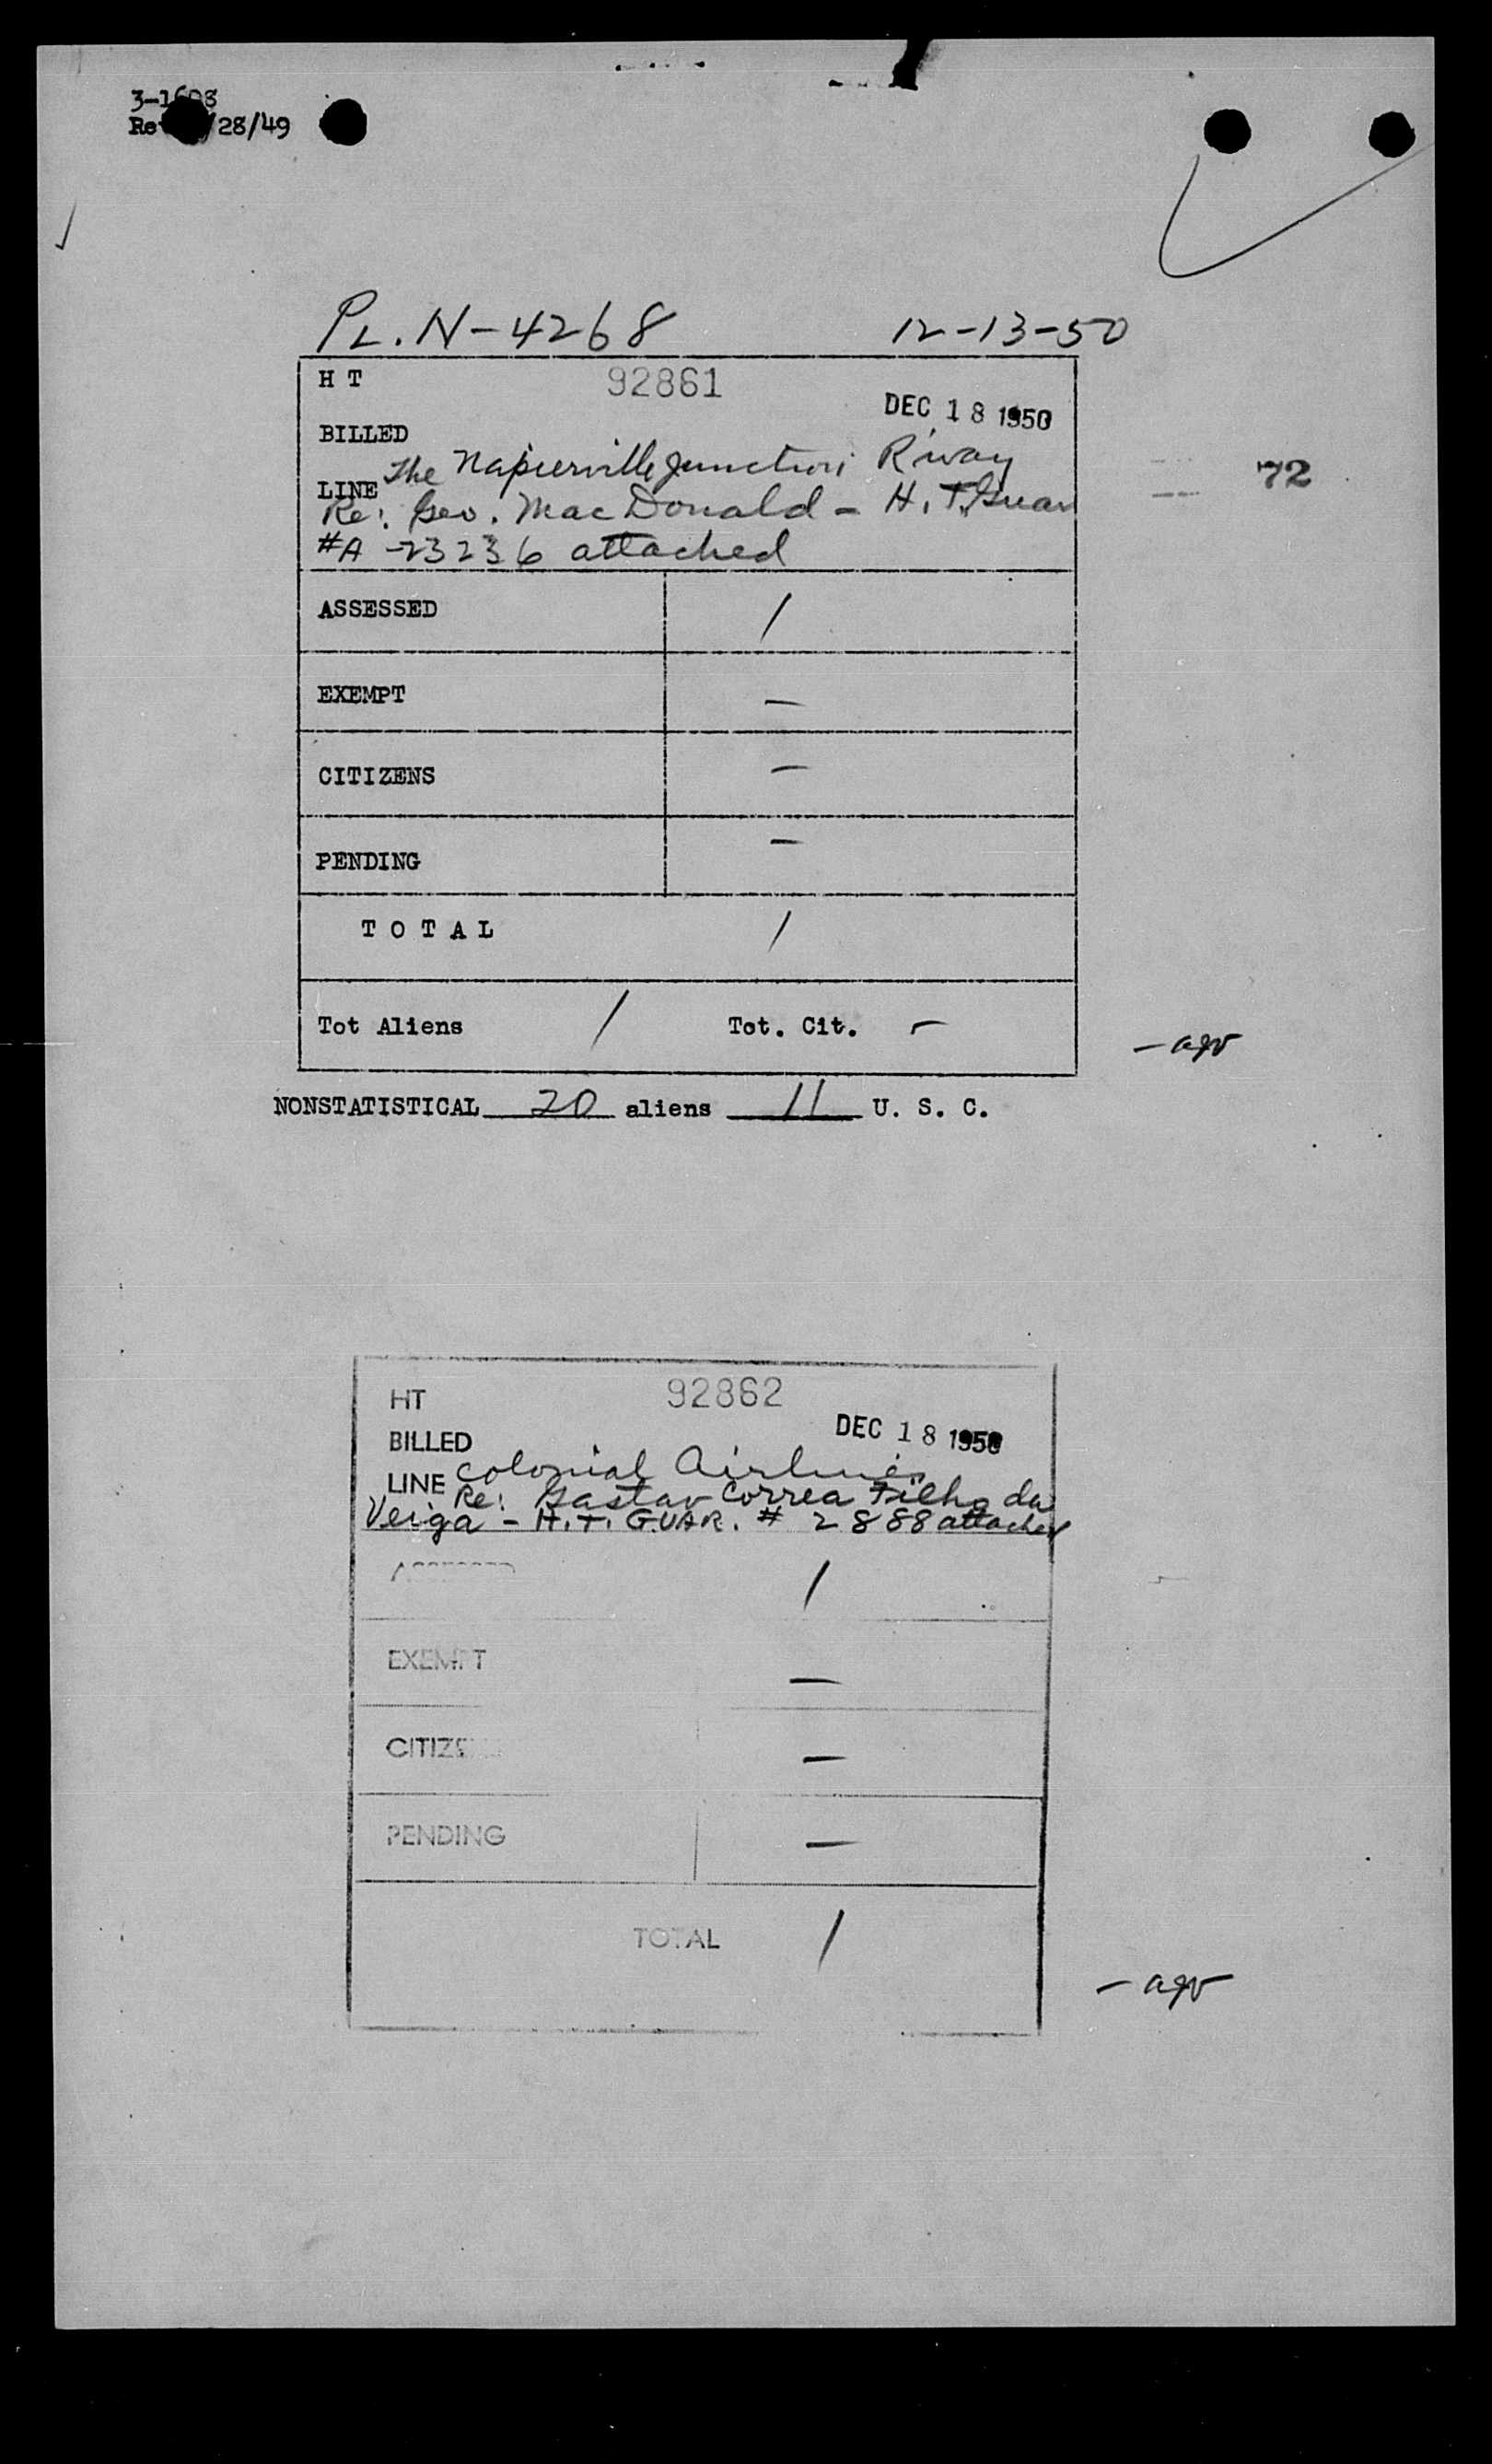 3-1608
28/49
PL. N-4268 12-13-50
H T 92861
DEC 18 1950
BILLED
The Napierville Junction R'way
LINE
72
Re: Geo. MacDonald - H.T. Guar
#A-23236 attached
ASSESSED /
EXEMPT —
CITIZENS —
PENDING —
T O T A L /
Tot Aliens / Tot. Cit. —
NONSTATISTICAL 20 aliens 11 U. S. C.
HT 92862
DEC 18 1950
BILLED
LINE Colonial Airlines
Re: Gastav Correa Filho da
Veiga - H.T. GUAR. # 2888 attached
ASSESSED /
EXEMPT —
CITIZE —
PENDING —
TOTAL /